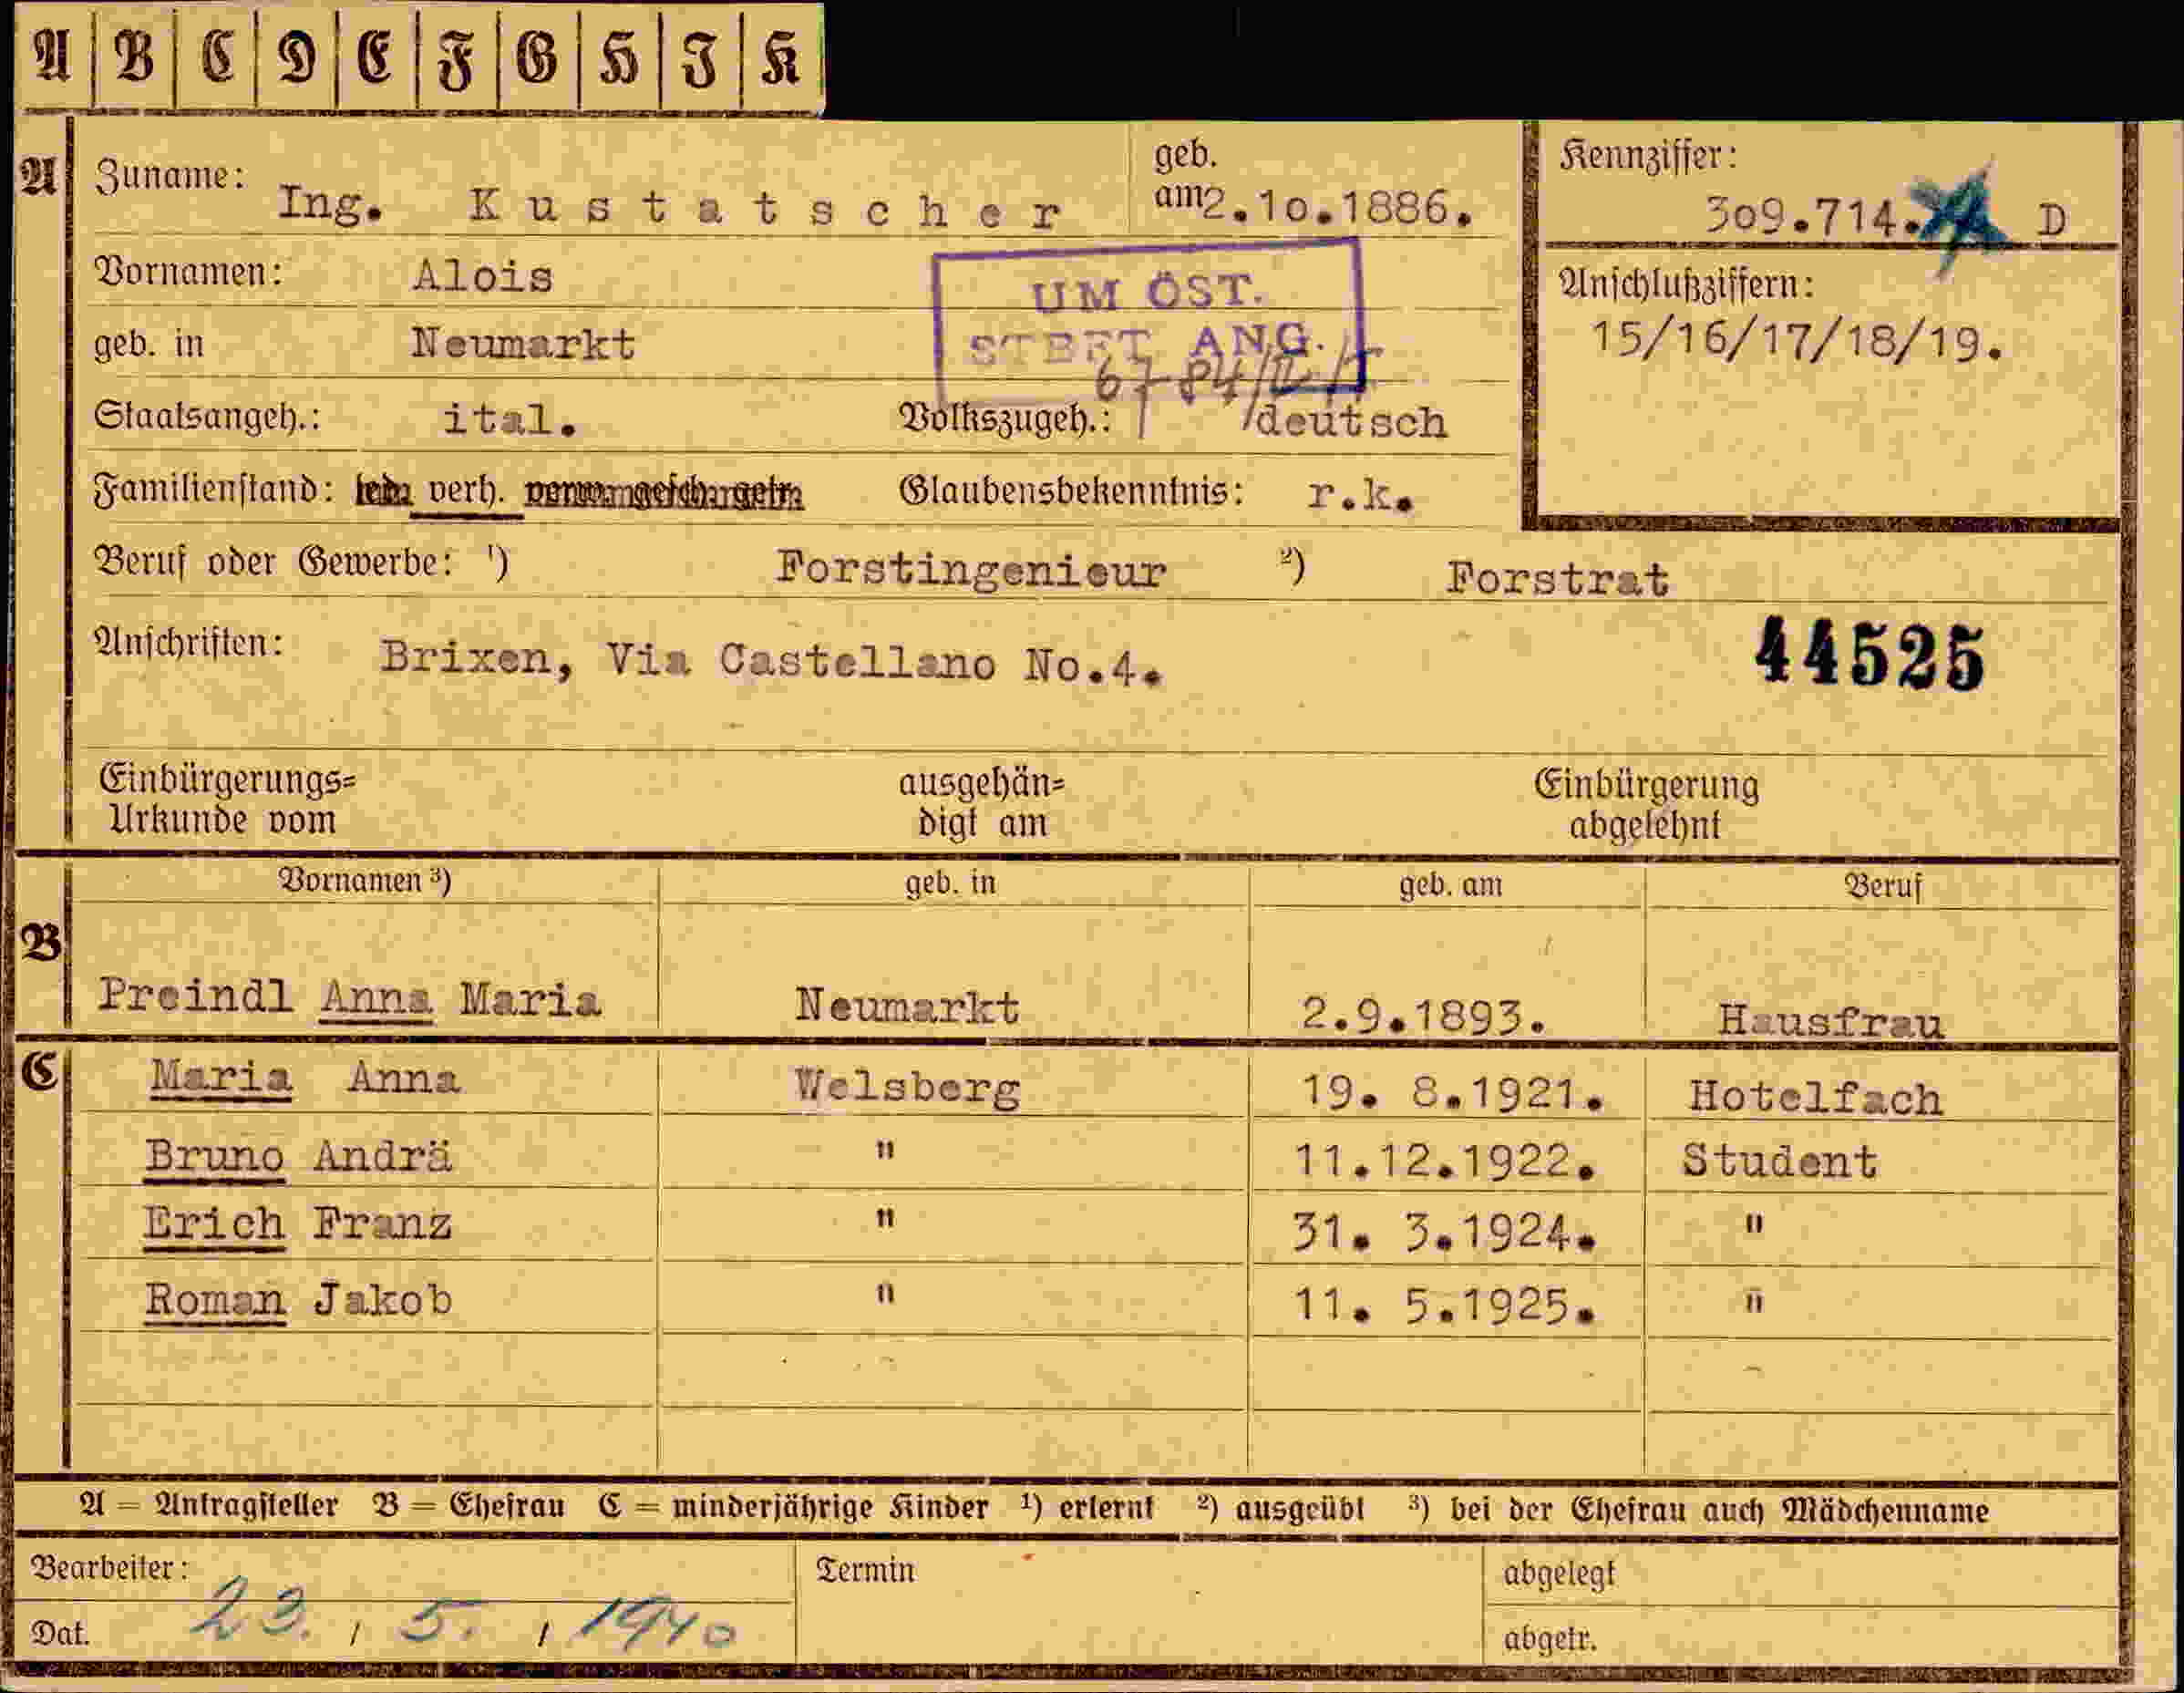 A B C D E F G H I K
A Zuname: Ing. Kustatscher geb. am 2.10.1886. Kennziffer: 309.714. D
Vornamen: Alois UM ÖST. Anschlußziffern:
geb. in Neumarkt STBFT ANG. 15/16/17/18/19.
Staatsangeh.: ital. Volkszugeh.: deutsch
Familienstand: verh. Glaubensbekenntnis: r.k.
Beruf oder Gewerbe: ¹) Forstingenieur ²) Forstrat
Anschriften: Brixen, Via Castellano No.4. 44525
Einbürgerungs= ausgehän= Einbürgerung
Urkunde vom digt am abgelehnt
Vornamen ³) geb. in geb. am Beruf
B Preindl Anna Maria Neumarkt 2.9.1893. Hausfrau
C Maria Anna Welsberg 19. 8.1921. Hotelfach
Bruno Andrä " 11.12.1922. Student
Erich Franz " 31. 3.1924. "
Roman Jakob " 11. 5.1925. "
A = Antragsteller B = Ehefrau C = minderjährige Kinder ¹) erlernt ²) ausgeübt ³) bei der Ehefrau auch Mädchenname
Bearbeiter: Termin abgelegt
Dat. 23. / 5. / 1940 abgetr.